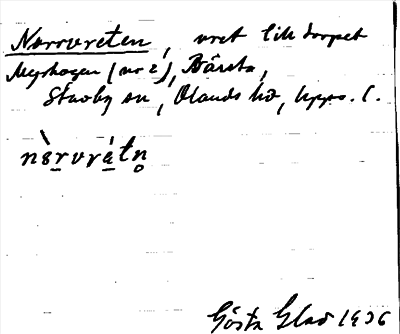 Norrvreten, vret till torpet
Myrhagen (nr 2), Bärsta,
Stavby sn, Olands hd, Upps. l.
nòrvrétn̥
Gösta Glad 1936